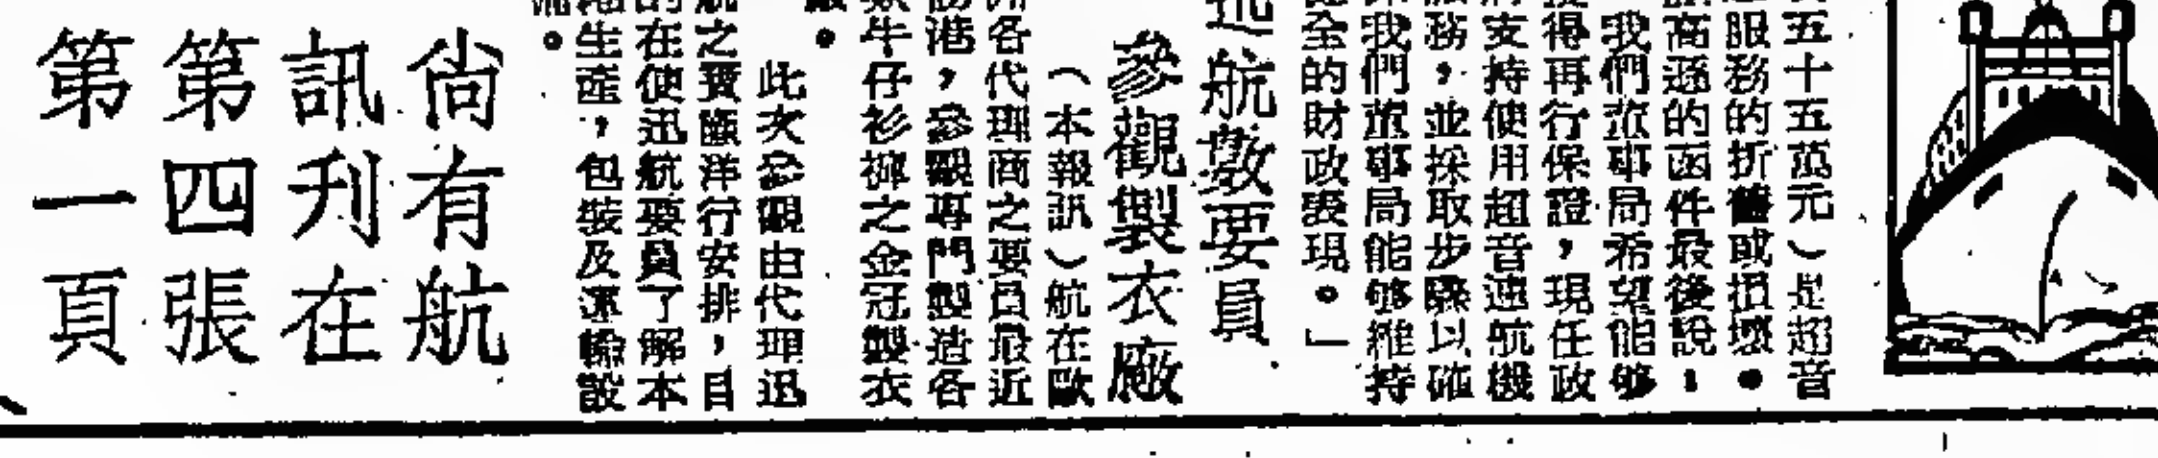 五十五萬元）是超音
服務的折舊或損壞。
高遜的函件最後說：
我們董事局希望能够
得再行保證，現任政
支持使用超音速航機
務，並採取步驟以確
我們董事局能够維持
全的財政表現。」
迅航數要員
參觀製衣廠
（本報訊）航在歐
洲各代理商之要員最近
港，參觀專門製造各
牛仔衫褲之金冠製衣
廠。
此次參觀由代理迅
航之寶順洋行安排，目
的在使迅航要員了解本
港生產，包裝及運輸設
施。
尙有航
訊刋在
第四張
第一頁